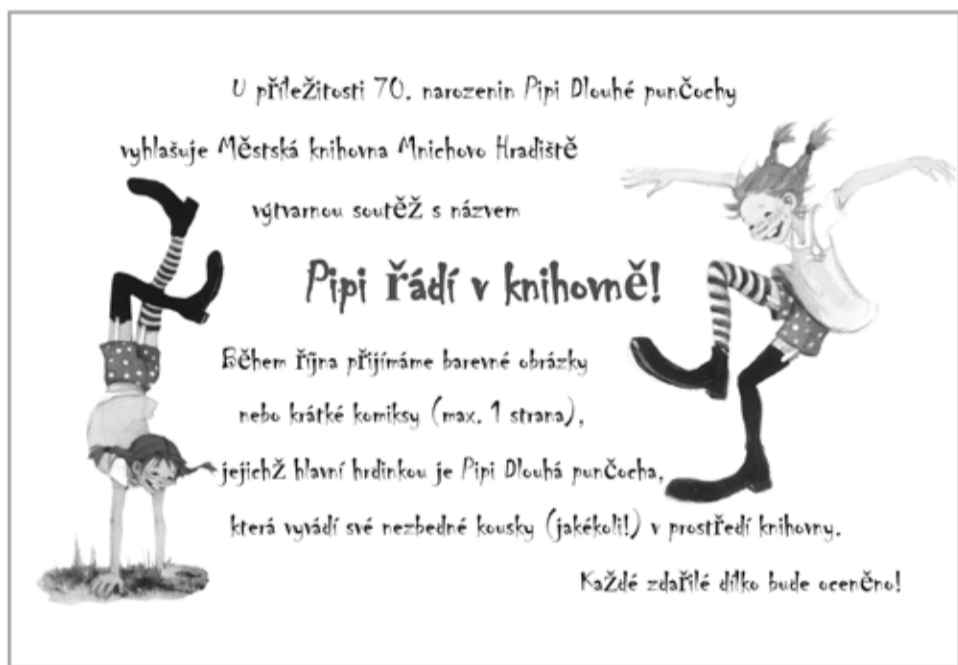 U příležitosti 70. narozenin Pipi Dlouhé punčochy
vyhlašuje Městská knihovna Mnichovo Hradiště
výtvarnou soutěž s názvem
Pipi řádí v knihovně!
Během října přijímáme barevné obrázky
nebo krátké komiksy (max. 1 strana),
jejichž hlavní hrdinkou je Pipi Dlouhá punčocha,
která vyvádí své nezbedné kousky (jakékoli!) v prostředí knihovny.
Každé zdařilé dílko bude oceněno!